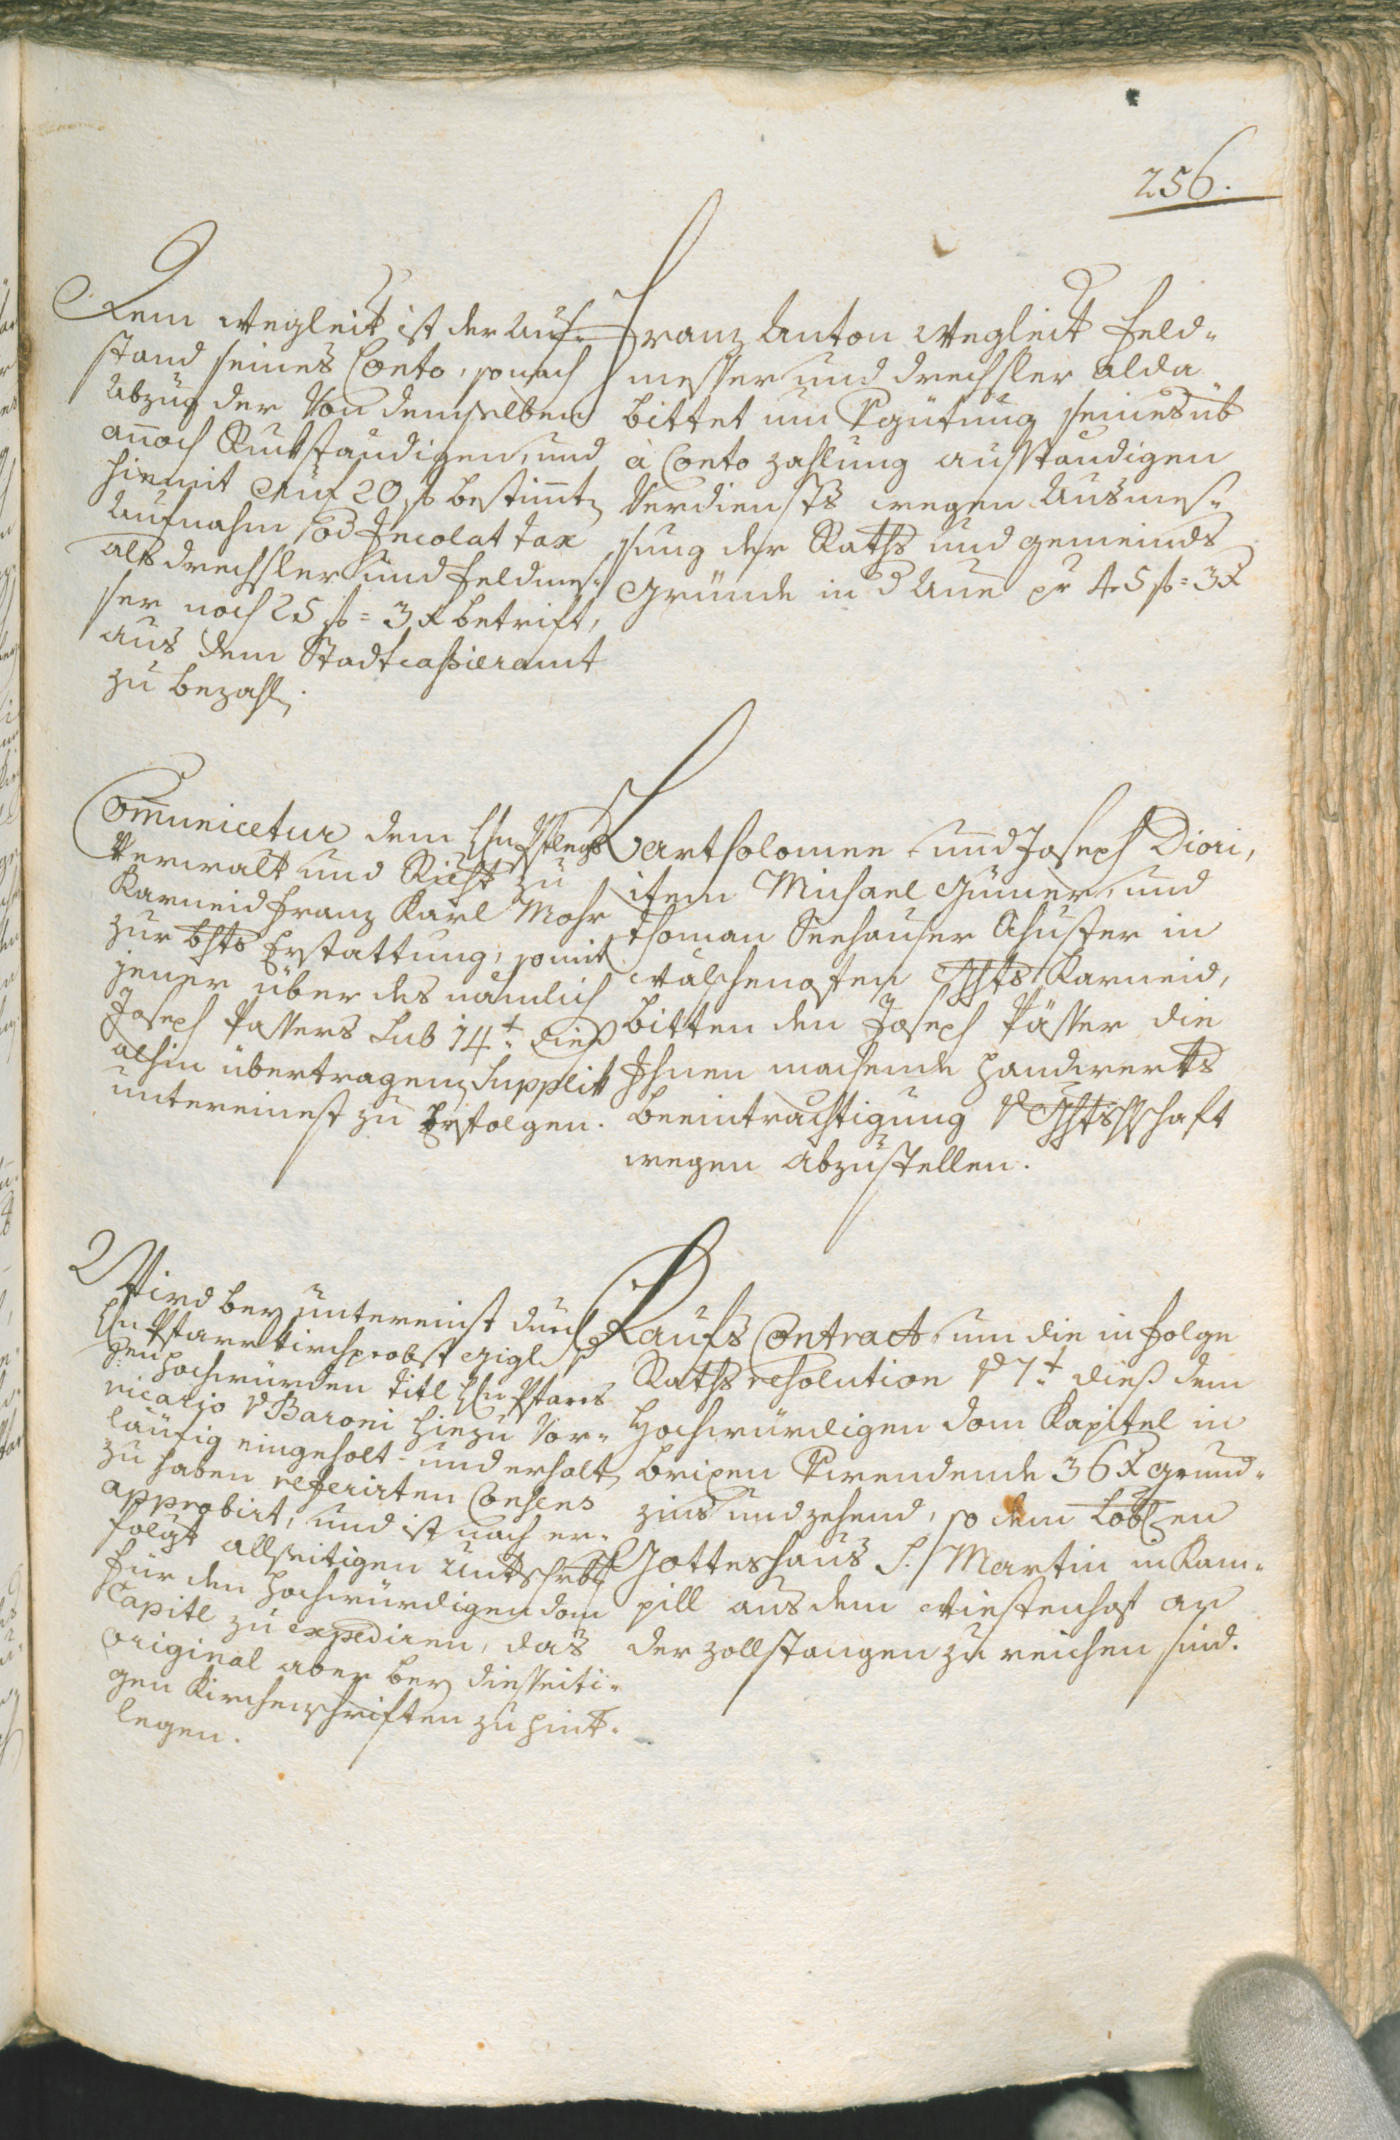 256.
Dem Wegleit ist der Auß-
stand seines Conto, so nach
Abzug der von demselben
annoch Ruckständigen, und
hiemit auf 20 f bestimt
Aufnahm od Incolat tax
als drechsler und feldmes-
ser noch 25 f = 3 x betrift,
aus dem Stadtcaßieramt
zu bezahln.
Franz Anton Wegleit feld-
messer und drechsler alda
bittet um Vgütung seines üb
à Conto zahlung ausständigen
Verdiensts wegen Ausmes-
sung der Raths und gemeinds
Gründe in d Aue pr 45 f = 3 x
Communicetur dem Hn Pflegs
Verwalt und Richt zu
Karneid Franz Karl Mohr
zur Erstattung, somit
jener über des nämlich
Joseph Passers sub 14t dieß
alhin übertragenen Supplik
untereinest zu erfolgen.
Bartholomee und Joseph Diori,
item Michael Gümer, und
Thoman Seehauser Schuster in
Wälschenofen Ghts Karneid,
bitten den Joseph Pässer die
Ihnen machende handwerks
beeinträchtigung
wegen abzustellen.
Wird bey untereinst durch
Hn Pfarrkirchprobst
hochwürden titl Hn Pfarr
vicario v Baroni hiezu Vor-
läufig eingeholt- und erhaltn
zu haben referirten Consens
approbirt, und ist nach er-
folgt allseitigen Untschrift
für den hochwürdigen dom
Capitl zu expediren, das
original aber bey diesseiti-
gen Kirchenschriften zu hint-
legen.
Kaufs Contract um die in folge
Raths resolution v 7t dieß dem
Hochwürdigen dom Kapitel in
brixen Vwendende 36 x grund-
zins und zehend, so dem Löbl en
Gottes haus S. Martin in Kam-
pill aus dem Wiestenhof an
der zollstangen zu reichen sind.